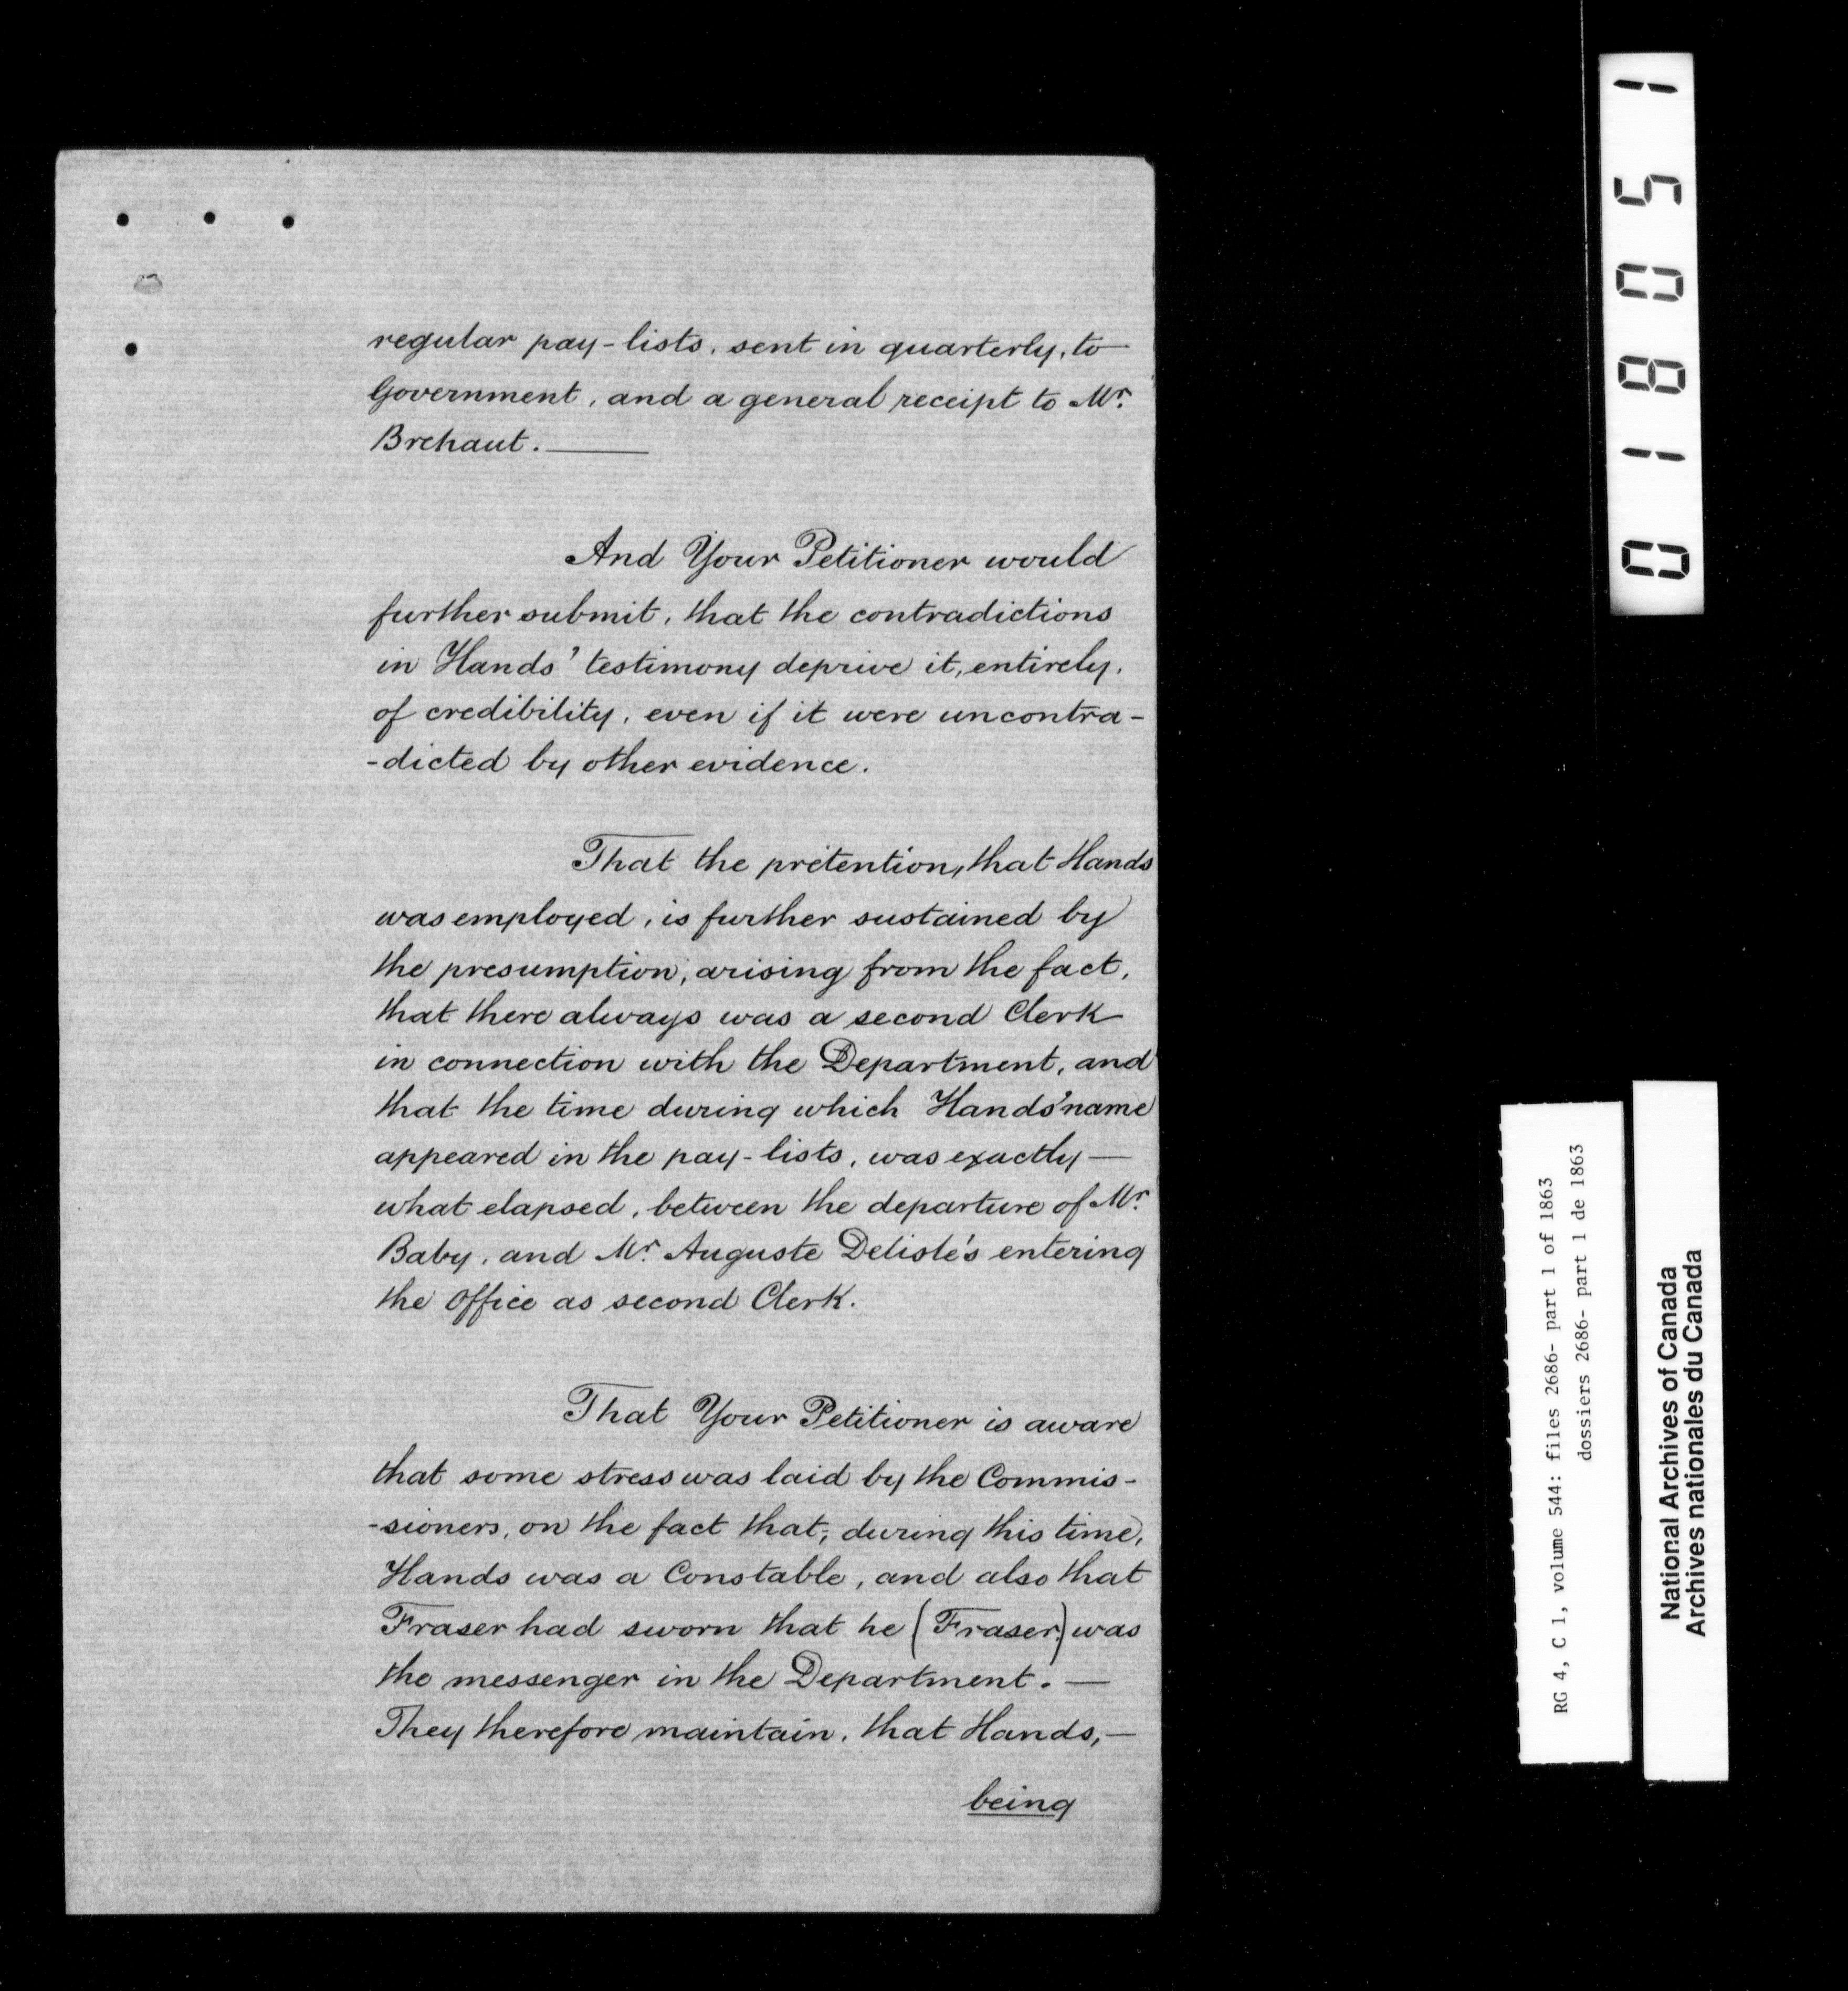 regular pay-lists, sent in quarterly, to
Government, and a general receipt to Mr.
Brehaut.
And Your Petitioner would
further submit, that the contradictions
in Hands' testimony deprive it, entirely,
of credibility, even if it were uncontra-
-dicted by other evidence.
That the pretention, that Hands
was employed, is further sustained by
the presumption, arising from the fact,
that there always was a second Clerk
in connection with the Department, and
that the time during which Hands' name
appeared in the pay-lists, was exactly—
what elapsed, between the departure of Mr.
Baby, and Mr. Auguste Delisle's entering
the Office as second Clerk.
That Your Petitioner is aware
that some stress was laid by the Commis-
-sioners, on the fact that, during this time,
Hands was a Constable, and also that
Fraser had sworn that he (Fraser) was
the messenger in the Department.—
They therefore maintain, that Hands,—
being
018051
RG 4, C 1, volume 544: files 2686- part 1 of 1863
dossiers 2686- part 1 de 1863
National Archives of Canada
Archives nationales du Canada